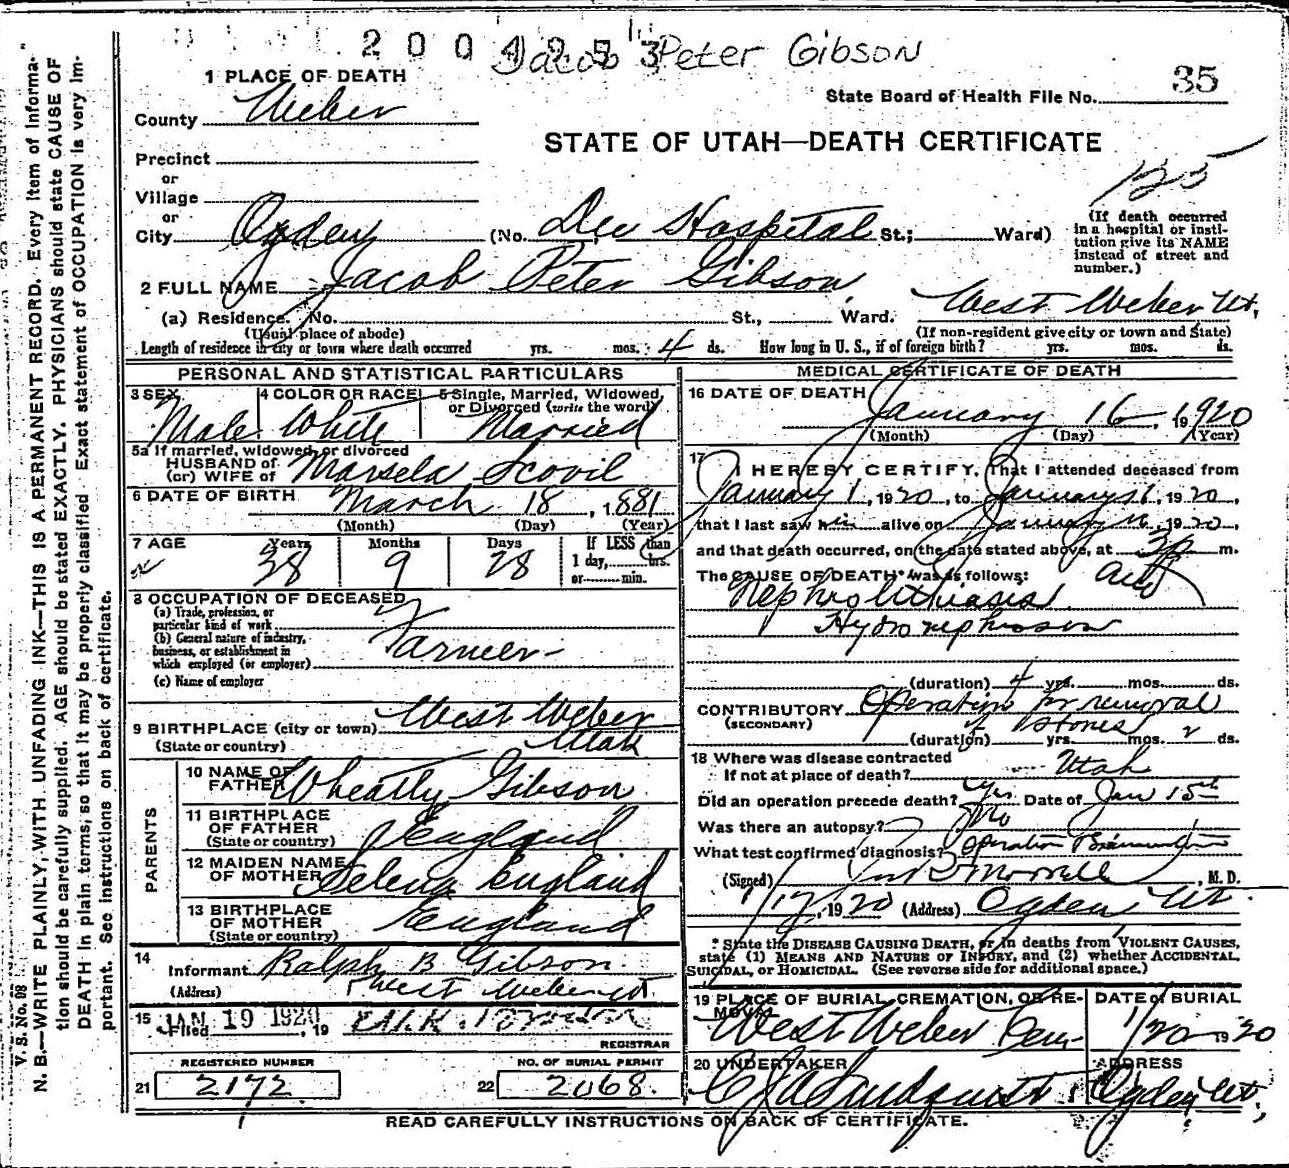 Jacob Peter Gibson
35
State Board of Health File No.
1 PLACE OF DEATH
County Weber
STATE OF UTAH—DEATH CERTIFICATE
Precinct
or
Village
or
125
City Ogden (No. Dee Hospital St.; Ward)
(If death occurred in a hospital or institution give its NAME instead of street and number.)
2 FULL NAME Jacob Peter Gibson
(a) Residence. No. St., Ward. West Weber Ut.
(Usual place of abode) (If non-resident give city or town and State)
Length of residence in city or town where death occurred yrs. mos. 4 ds. How long in U. S., if of foreign birth? yrs. mos. ds.
PERSONAL AND STATISTICAL PARTICULARS
3 SEX Male
4 COLOR OR RACE White
5 Single, Married, Widowed, or Divorced (write the word) Married
5a If married, widowed, or divorced
HUSBAND of
(or) WIFE of Marsela Scovil
6 DATE OF BIRTH March 18, 1881
(Month) (Day) (Year)
7 AGE Years Months Days If LESS than
38 9 28 1 day, hrs.
or min.
8 OCCUPATION OF DECEASED
(a) Trade, profession, or
particular kind of work
(b) General nature of industry,
business, or establishment in
which employed (or employer)
Farmer
(c) Name of employer
9 BIRTHPLACE (city or town) West Weber
(State or country) Utah
PARENTS
10 NAME OF FATHER Wheatly Gibson
11 BIRTHPLACE OF FATHER England
(State or country)
12 MAIDEN NAME OF MOTHER Selena England
13 BIRTHPLACE OF MOTHER England
(State or country)
14
Informant Ralph B Gibson
(Address) West Weber Ut.
15 Filed JAN 19 1920, 19
REGISTRAR
REGISTERED NUMBER
21 2172
NO. OF BURIAL PERMIT
22 2068.
MEDICAL CERTIFICATE OF DEATH
16 DATE OF DEATH January 16, 1920
(Month) (Day) (Year)
17 I HEREBY CERTIFY, That I attended deceased from
January 1, 1920, to January 16, 1920,
that I last saw him alive on January 16, 1920,
and that death occurred, on the date stated above, at 3p m.
The CAUSE OF DEATH* was as follows:
Nephrolithiasis
(duration) 4 yrs. mos. ds.
CONTRIBUTORY Operation for removal
(SECONDARY) of stones
(duration) yrs. mos. 2 ds.
18 Where was disease contracted
If not at place of death? Utah
Did an operation precede death? Yes Date of Jan 15th
Was there an autopsy? No
What test confirmed diagnosis? Operation
(Signed) Morrell, M. D.
1/17, 1920 (Address) Ogden Ut.
* State the DISEASE CAUSING DEATH, or in deaths from VIOLENT CAUSES,
state (1) MEANS AND NATURE OF INJURY, and (2) whether ACCIDENTAL,
SUICIDAL, or HOMICIDAL. (See reverse side for additional space.)
19 PLACE OF BURIAL, CREMATION, OR REMOVAL
West Weber Cem
DATE of BURIAL
1/20 1920
20 UNDERTAKER
Lindquist
ADDRESS
Ogden Ut.
READ CAREFULLY INSTRUCTIONS ON BACK OF CERTIFICATE.
V. S. No. 98
N. B.—WRITE PLAINLY, WITH UNFADING INK—THIS IS A PERMANENT RECORD. Every item of information should be carefully supplied. AGE should be stated EXACTLY. PHYSICIANS should state CAUSE OF DEATH in plain terms, so that it may be properly classified. Exact statement of OCCUPATION is very important. See instructions on back of certificate.